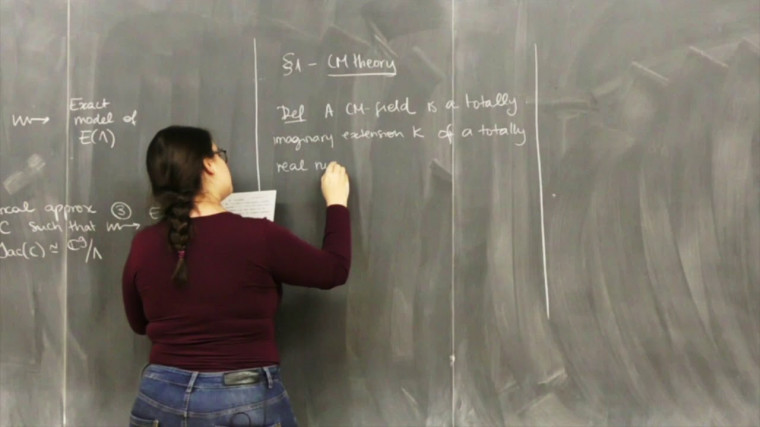 Exact
model of
E(Λ)
rical approx ③ E
C such that
Jac(C) ≅ ℂᵍ/Λ
§1 - CM theory
Def A CM-field is a totally
imaginary extension K of a totally
real nu